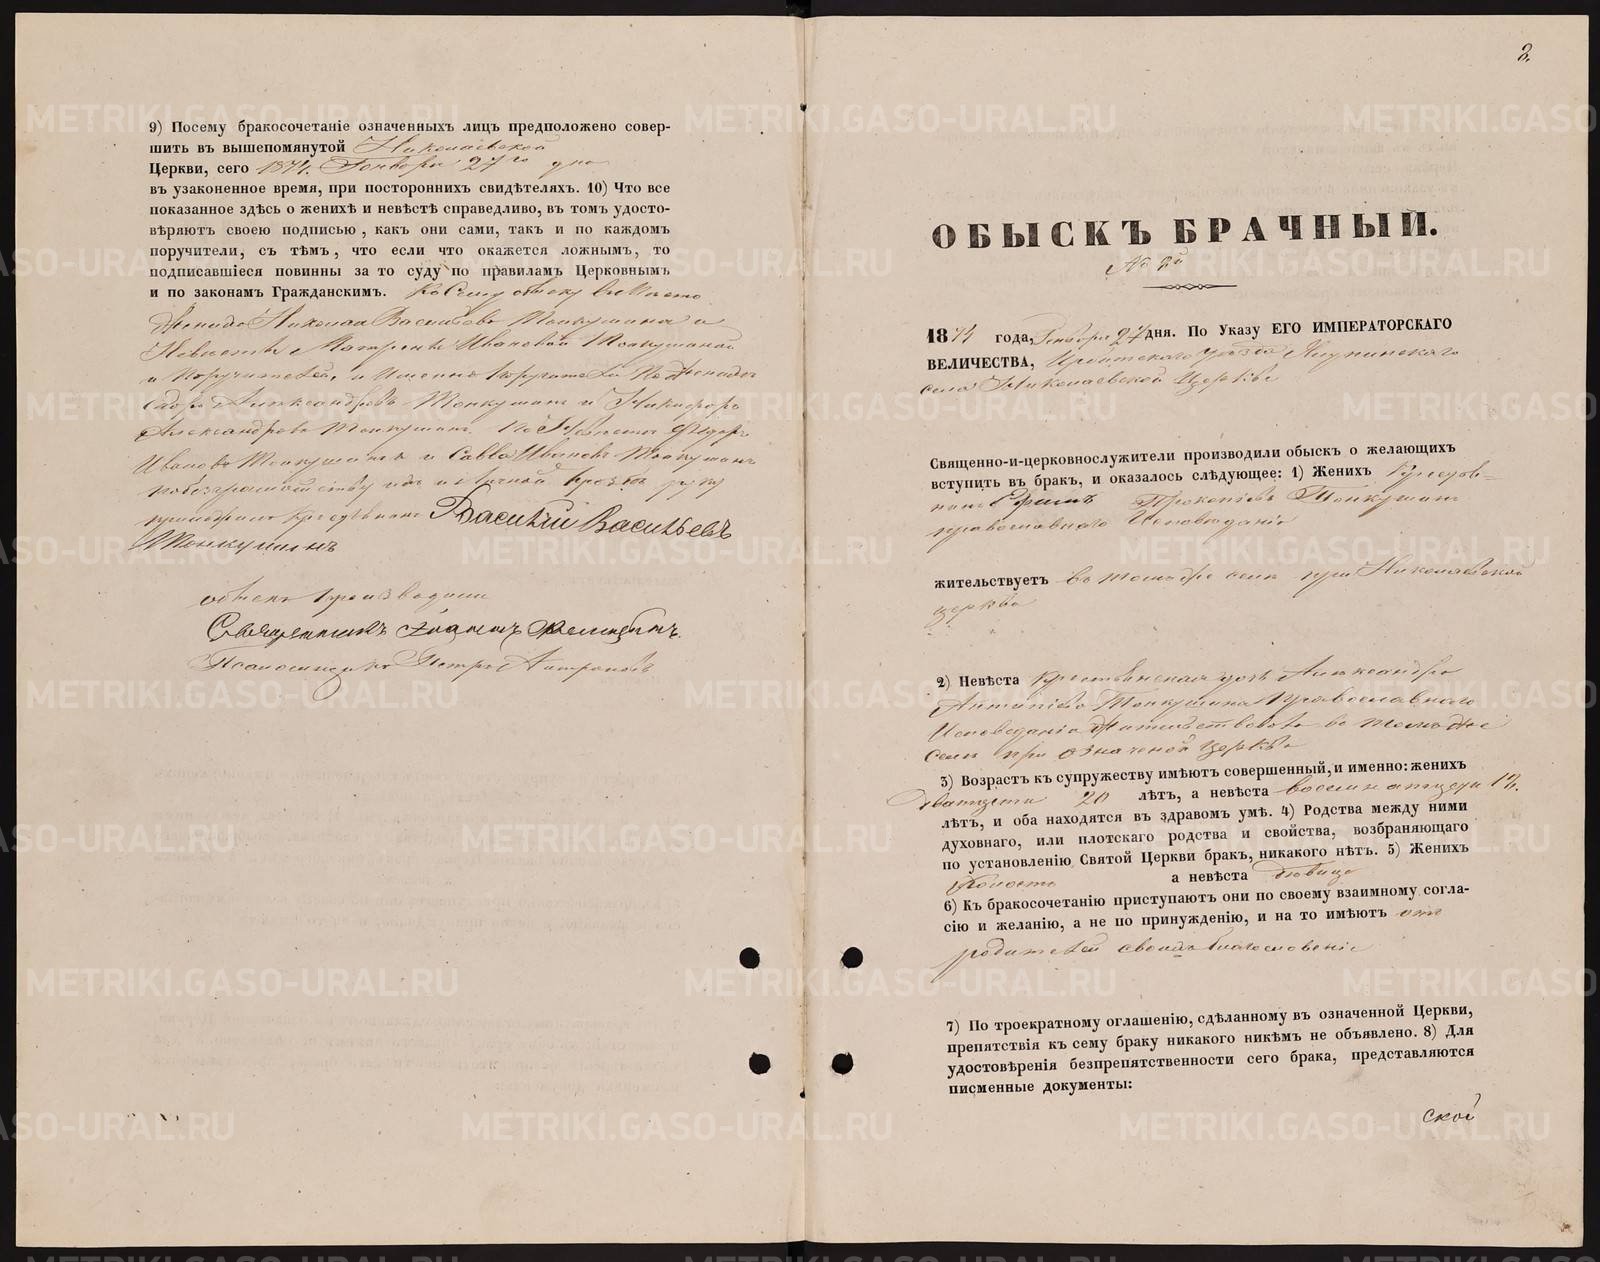 9) Посему бракосочетаніе означенныхъ лицъ предположено совер-
шить въ вышепомянутой Николаевской
Церкви, сего 1874. Генваря 27го дня
въ узаконенное время, при постороннихъ свидѣтеляхъ. 10) Что все
показанное здѣсь о женихѣ и невѣстѣ справедливо, въ томъ удосто-
вѣряютъ своею подписью, какъ они сами, такъ и по каждомъ
поручители, съ тѣмъ, что если что окажется ложнымъ, то
подписавшіеся повинны за то суду по правиламъ Церковнымъ
и по законамъ Гражданскимъ. Къ Сему обыску вместо
Жениха Васильева Топкушина и
Невесты Ивановой Топкушиной
и Поручителей, и Именно поручители по Женихе
Александровъ Топкушинъ и Никифоръ
Александровъ Топкушинъ По Невесте Федоръ
Ивановъ Топкушинъ и Савва Ивановъ Топкушинъ
по безграмотству ихъ и личной прозьбе руку
приложилъ Крестьянинъ Василий Васильевъ
Топкушинъ
обыскъ производили
Священникъ Іоаннъ
Псаломщикъ Петръ
3.
ОБЫСКЪ БРАЧНЫЙ.
№ 2й
1874 года, Генваря 27 дня. По Указу ЕГО ИМПЕРАТОРСКАГО
ВЕЛИЧЕСТВА, Ирбитскаго уезда
села Николаевской Церкве
Священно-и-церковнослужители производили обыскъ о желающихъ
вступить въ бракъ, и оказалось слѣдующее: 1) Женихъ
Ефимъ Прокопіевъ Топкушинъ
православнаго Исповеданія
жительствуетъ въ томъ же селе при Николаевской
церкве
2) Невѣста Крестьянская дочь Александра
Антипіева Топкушина Православнаго
Исповеданія Жительствовала въ томъ же
селе при означеной Церкве
3) Возрастъ къ супружеству имѣютъ совершенный, и именно: женихъ
дватцети 20 лѣтъ, а невѣста восемнатцети 18.
лѣтъ, и оба находятся въ здравомъ умѣ. 4) Родства между ними
духовнаго, или плотскаго родства и свойства, возбраняющаго
по установленію Святой Церкви бракъ, никакого нѣтъ. 5) Женихъ
Холостъ а невѣста девица
6) Къ бракосочетанію приступаютъ они по своему взаимному согла-
сію и желанію, а не по принужденію, и на то имѣютъ отъ
родителей своихъ благословеніе
7) По троекратному оглашенію, сдѣланному въ означенной Церкви,
препятствія къ сему браку никакого никѣмъ не объявлено. 8) Для
удостовѣренія безпрепятственности сего брака, представляются
писменные документы:
ской
METRIKI.GASO-URAL.RU